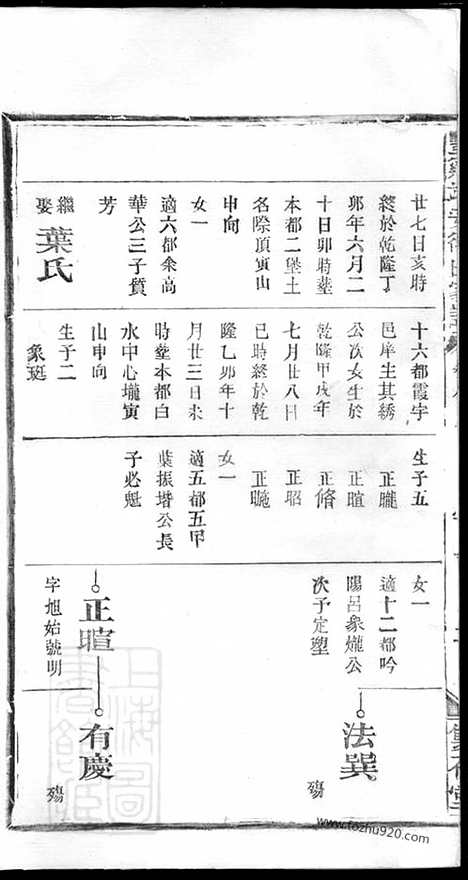 廿七日亥時
終於乾隆丁
卯年六月二
十日卯時塟
本都二堡土
名際頂寅山
申向
女一
適六都桒高
華公三子質
芳
繼娶葉氏
十六都霞宇
邑庠生其綉
公次女生於
乾隆甲戌年
七月廿八日
巳時終於乾
隆乙卯年十
月廿三日未
時塟本都白
水中心壠寅
山申向
生子二
象珽
生子五
正朧
正暄
正脩
正昭
正暆
女一
適五都五甲
葉振堦公長
子必魁
女一
適十二都吟
陽呂衆爖公
次子定瑩
正暄
字旭始號明
法巽
殤
有慶
殤
www.fozhu920.com